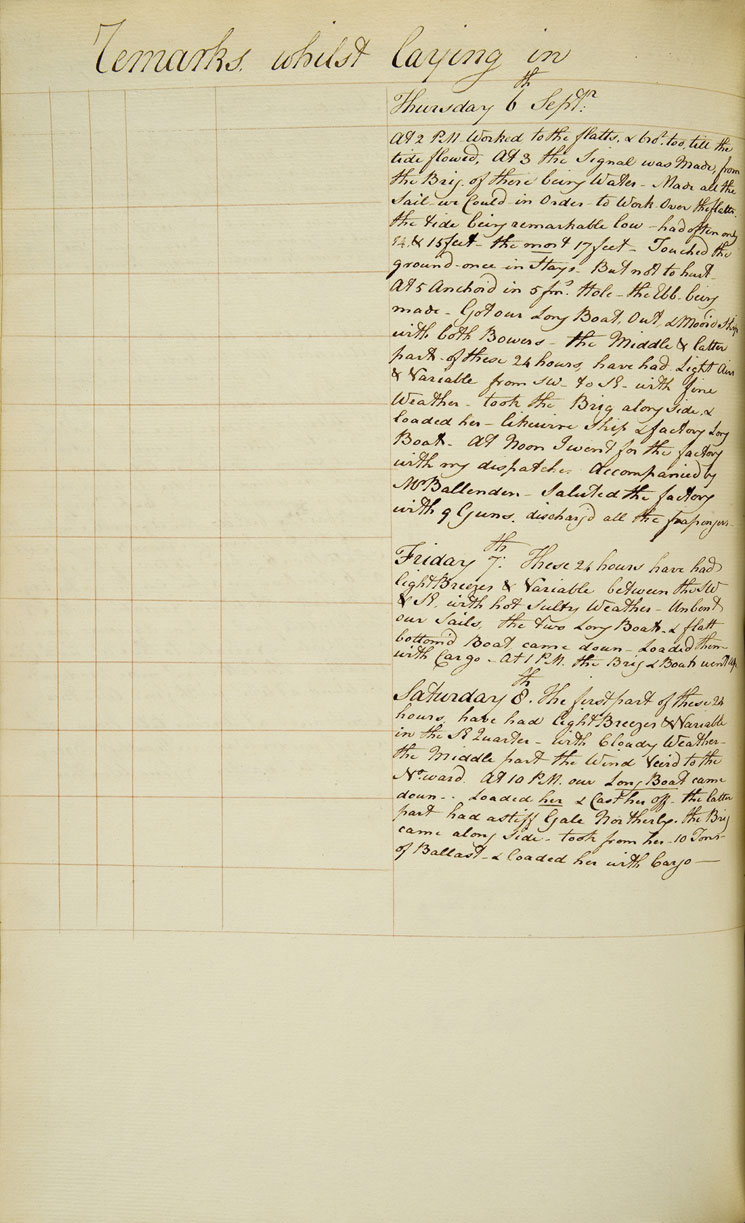 Remarks whilst laying in
Thursday 6th Septr:
At 2 PM Worked to the flatts, & bro.t too, till the
tide flowed, At 3 the Signal was Made, from
the Brig. of there being Water - Made all the
Sail we Could in Order - to Work Over the flatts.
the tide being remarkable low - had often only
14 & 15 feet - the most 17 feet - Touched the
ground - once in Stays - But not to hurt
At 5 Anchord in 5 fm. Hole - the Ebb being
made - Got our Long Boat, Out, & Moor'd Ship
with both Bowers - the Middle & latter
part - of these 24 hours, have had Light Airs
& Variable from SW - to SE - with fine
Weather - took the Brig along side, &
loaded her - likewise Ship & factory Long
Boat - At Noon I went for the factory
with my dispatches Accompanied by
Mr Ballenden - Saluted the factory
with 9 Guns. discharg'd all the passengers -
Friday 7th. These 24 hours have had
light Breezes & Variable between the SW
& SE, with hot Sulty Weather - Unbent
our Sails, the two Long Boats & flatt
bottom'd Boat came down - Loaded them
with Cargo - At 1 P.M. the Brig & Boats went up
Saturday 8th. The first part of these 24
hours, have had light Breezes & Variable
in the SE Quarter - with Cloudy Weather -
the Middle part the Wind Veir'd to the
No.ward. At 10 P.M. our Long Boat came
down - - Loaded her & Cast her off - the latter
part had a stiff Gale Northerly. the Brig
came along side - took from her - 10 Tons
of Ballast - & Loaded her with Cargo —